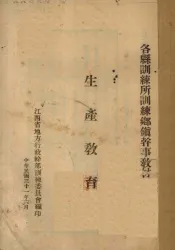 各縣訓練所訓練鄉鎮幹事教材
生產教育
江西省地方行政幹部訓練委員會編印
中華民國三十一年六月